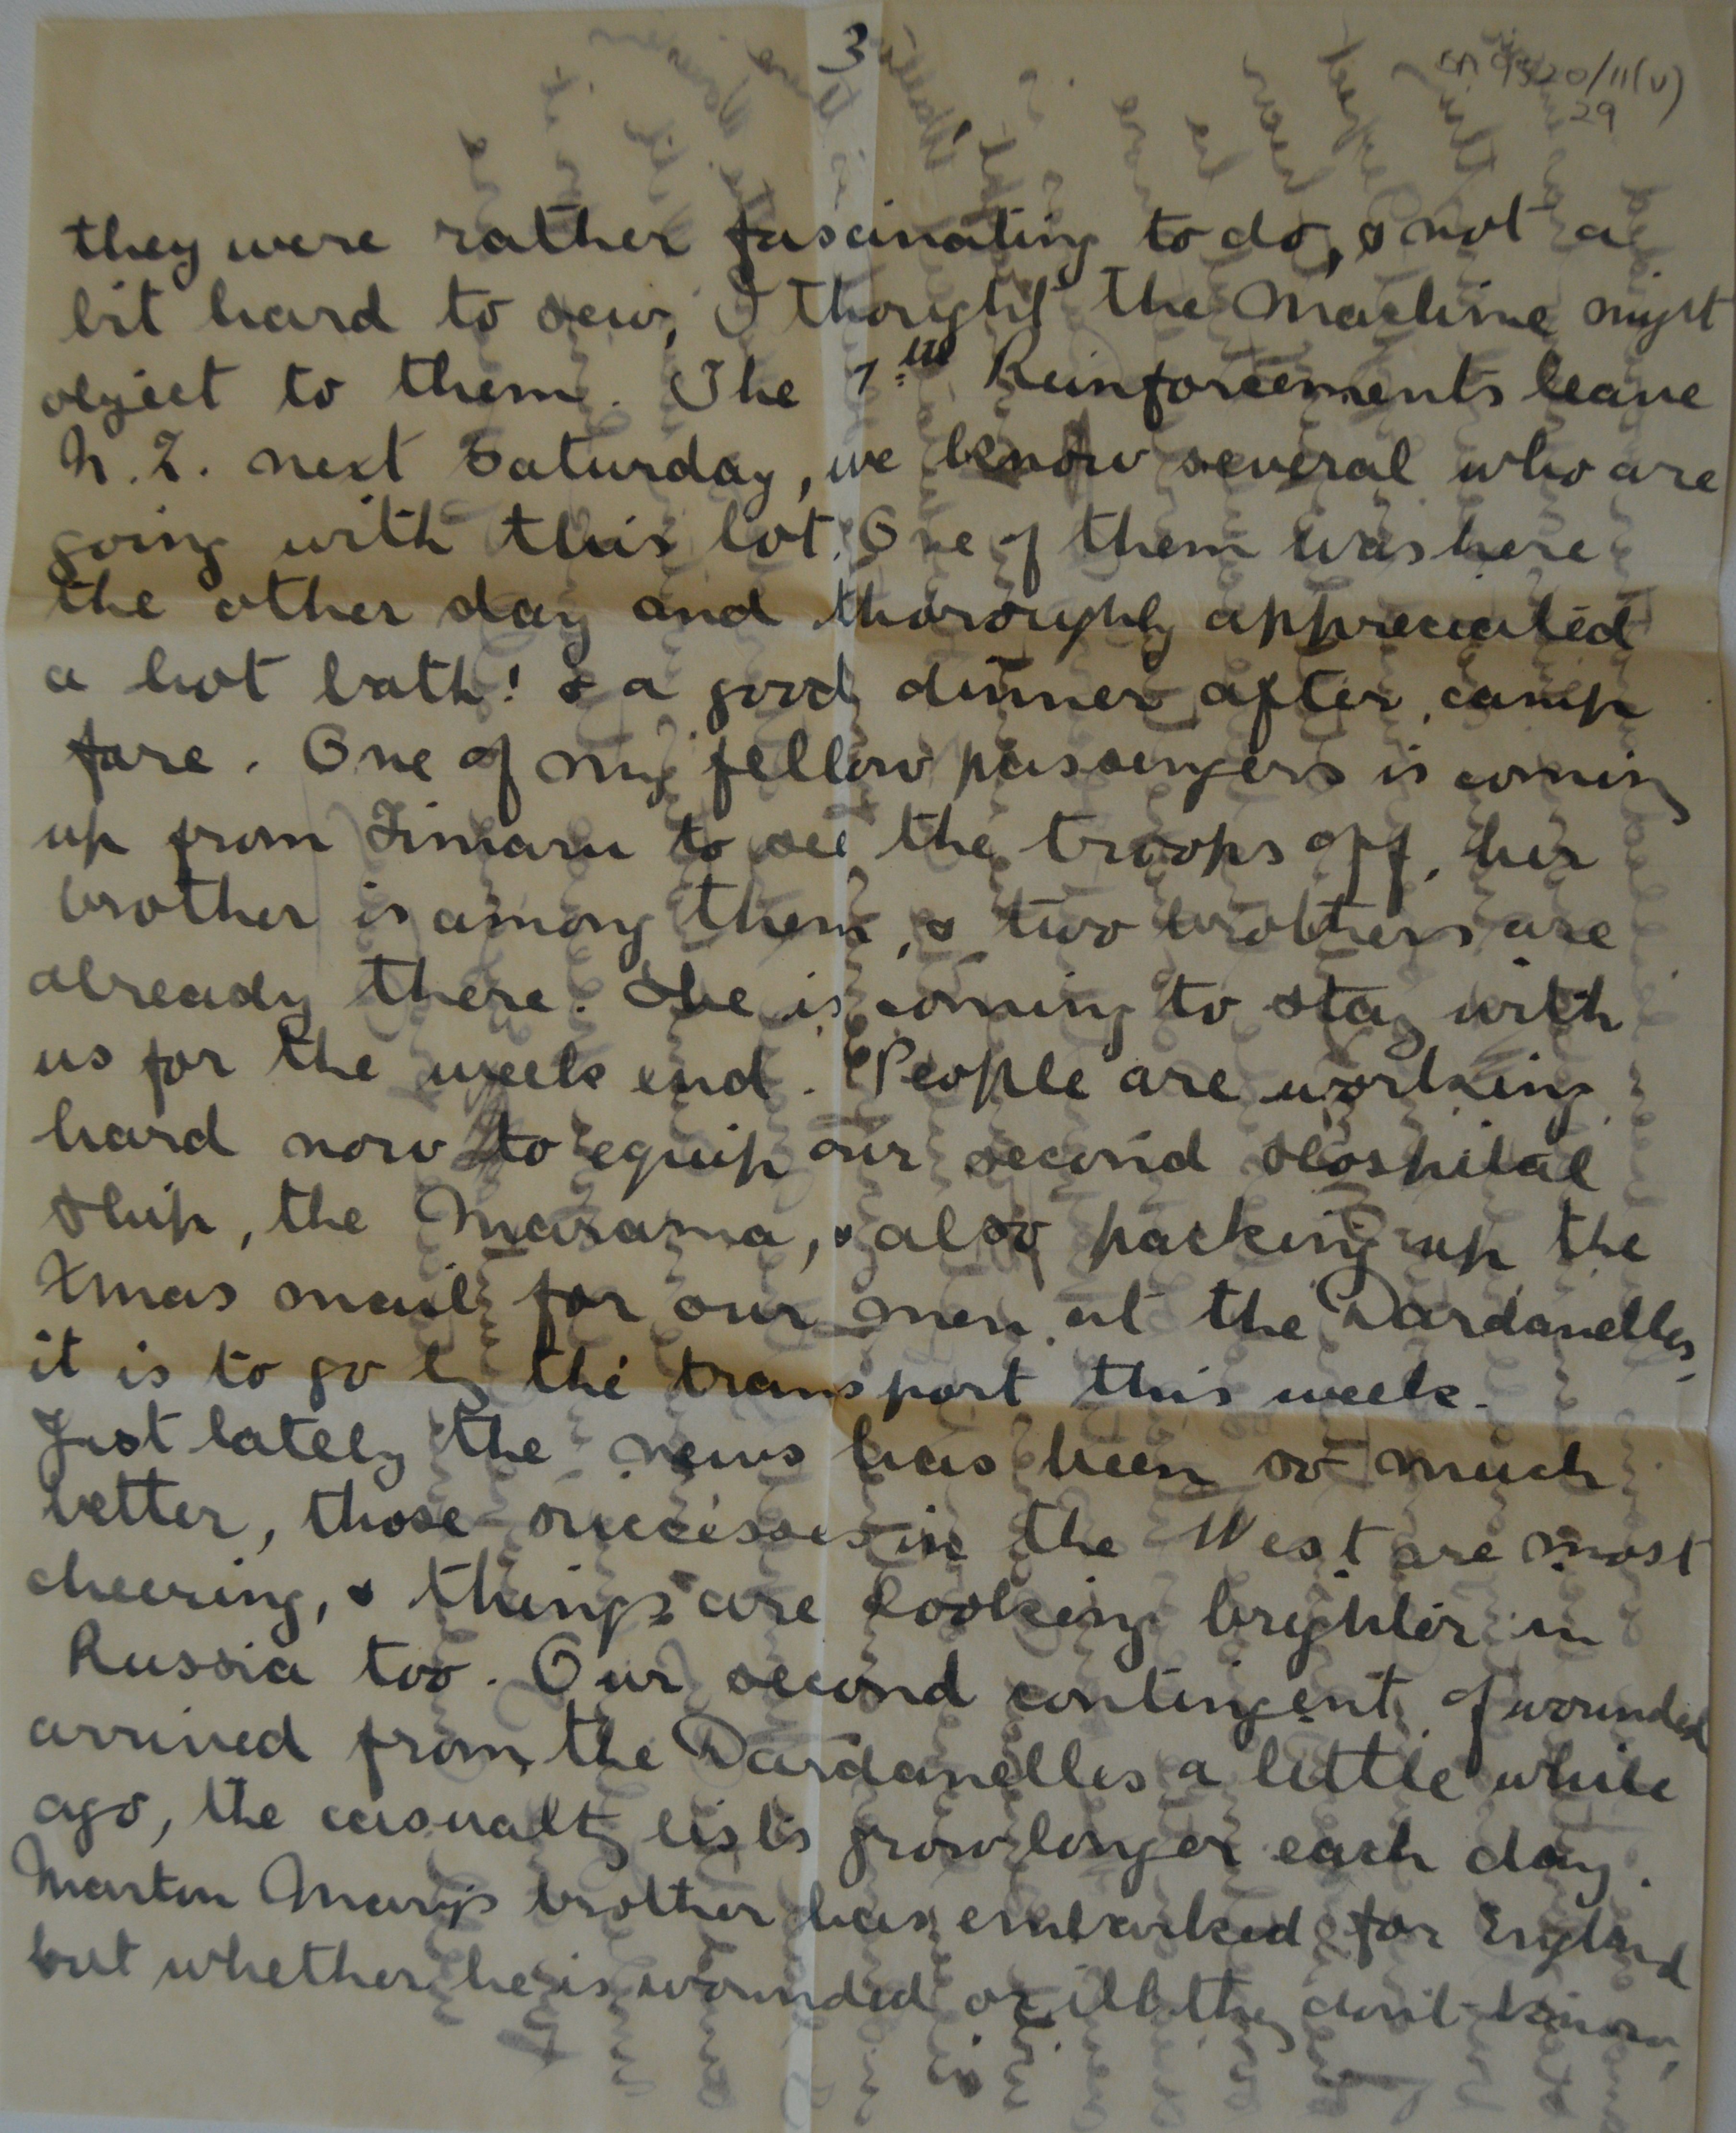 3
9520/11(v)
29
they were rather fascinating to do, & not a
bit hard to sew, I thought the Machine might
object to them. The 7th Reinforcements leave
N.Z. next Saturday, we know several who are
going with this lot. One of them was here
the other day and thoroughly appreciated
a hot bath! & a good dinner after camp
fare. One of my fellow passengers is coming
up from Timaru to see the troops off, her
brother is among them, & two brothers are
already there. She is coming to stay with
us for the week end. People are working
hard now to equip our second Hospital
Ship, the Marama, & also packing up the
Xmas mail for our men at the Dardanelles,
it is to go by the transport this week.
Just lately the news has been so much
better, those successes in the West are most
cheering, & things are looking brighter in
Russia too. Our second contingent of wounded
arrived from the Dardanelles a little while
ago, the casualty lists grow longer each day.
Marton Mary's brother has embarked for England
but whether he is wounded or ill they don't know,